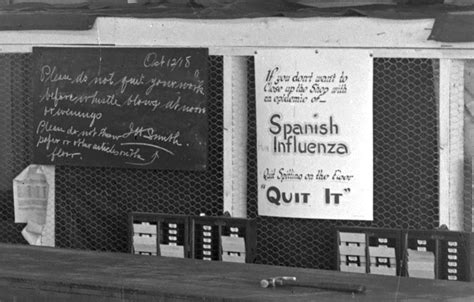 Oct 12/18
Please do not quit your work
before whistle blows at noon
evenings
Please do not throw J H Smith
paper or other articles on the
floor.
If you don't want to
Close up the Shop with
an epidemic of—
Spanish
Influenza
Quit Spitting on the Floor
"QUIT IT"